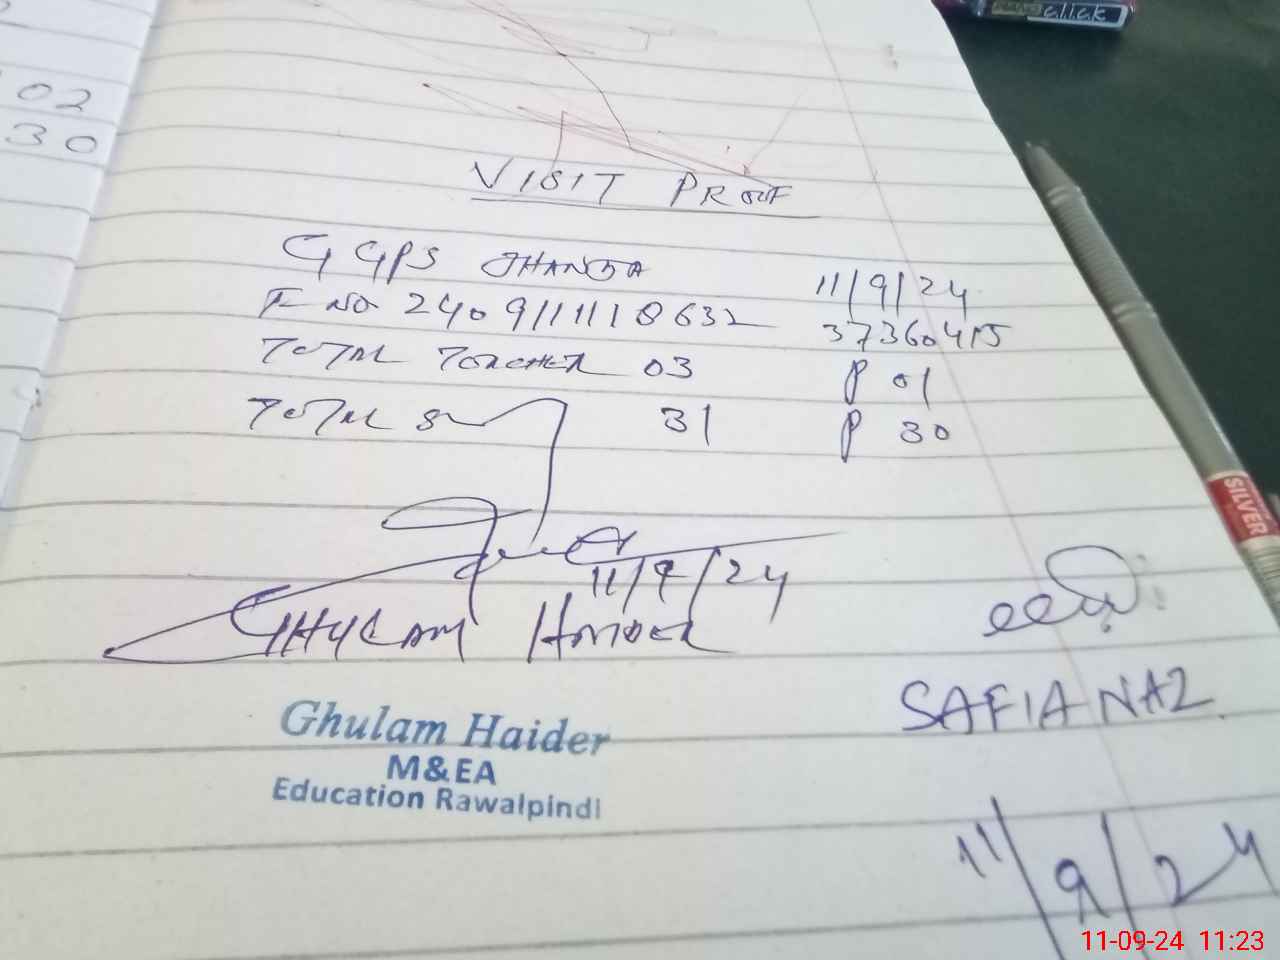 click
02
30
VISIT PROOF
GGPS JHANDA 11/9/24
F NO 2409111118632 37360415
TOTAL TEACHER 03 P 01
TOTAL 31 P 30
11/9/24
GHULAM HAIDER
SILVER
SAFIA NAZ
Ghulam Haider
M&EA
Education Rawalpindi
11/9/24
11-09-24 11:23